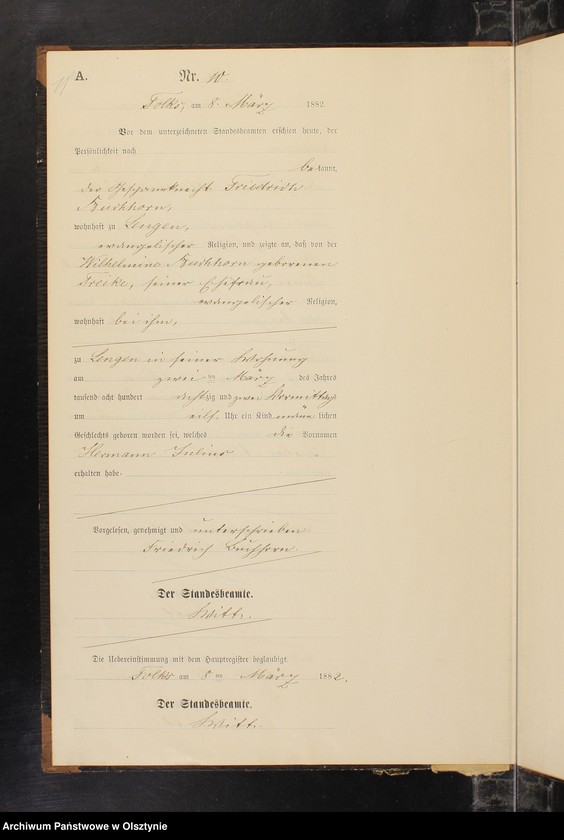 A. Nr. 10.
Tolks, am 8. März 1882.
Vor dem unterzeichneten Standesbeamten erschien heute, der
Persönlichkeit nach
bekannt,
der Friedrich
Buchhorn,
wohnhaft zu Lengen,
evangelischer Religion, und zeigte an, daß von der
Wilhelmine Buchhorn geborenen
seiner Ehefrau,
evangelischer Religion,
wohnhaft bei ihm,
zu Lengen in seiner Wohnung
am zwei ten März des Jahres
tausend acht hundert achtzig und zwei Vormittags
um eilf Uhr ein Kind männlichen
Geschlechts geboren worden sei, welches die Vornamen
Hermann Julius
erhalten habe.
Vorgelesen, genehmigt und unterschrieben
Friedrich Buchhorn.
Der Standesbeamte.
Witt.
Die Uebereinstimmung mit dem Hauptregister beglaubigt.
Tolks am 8ten März 1882.
Der Standesbeamte.
Witt.
Archiwum Państwowe w Olsztynie